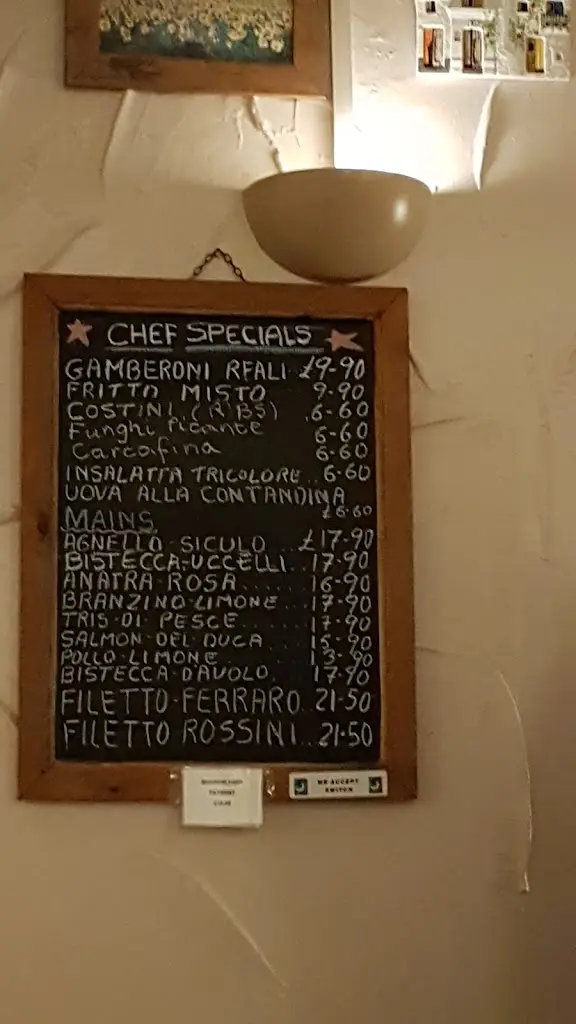 CHEF SPECIALS
GAMBERONI REALI £9-90
FRITTO MISTO 9-90
COSTINI (RIBS) 6-60
Funghi Picante 6-60
Carcafina 6-60
INSALATTA TRICOLORE.. 6-60
UOVA ALLA CONTANDINA
£6-60
MAINS
AGNELLO-SICULO...£17-90
BISTECCA-UCCELLI..17-90
ANATRA-ROSA.....16-90
BRANZINO-LIMONE...17-90
TRIS-DI PESCE....17-90
SALMON-DEL DUCA...15-90
POLLO-LIMONE....13-90
BISTECCA-D'AVOLO..17-90
FILETTO-FERRARO..21-50
FILETTO ROSSINI...21-50
WE ACCEPT
SWITCH